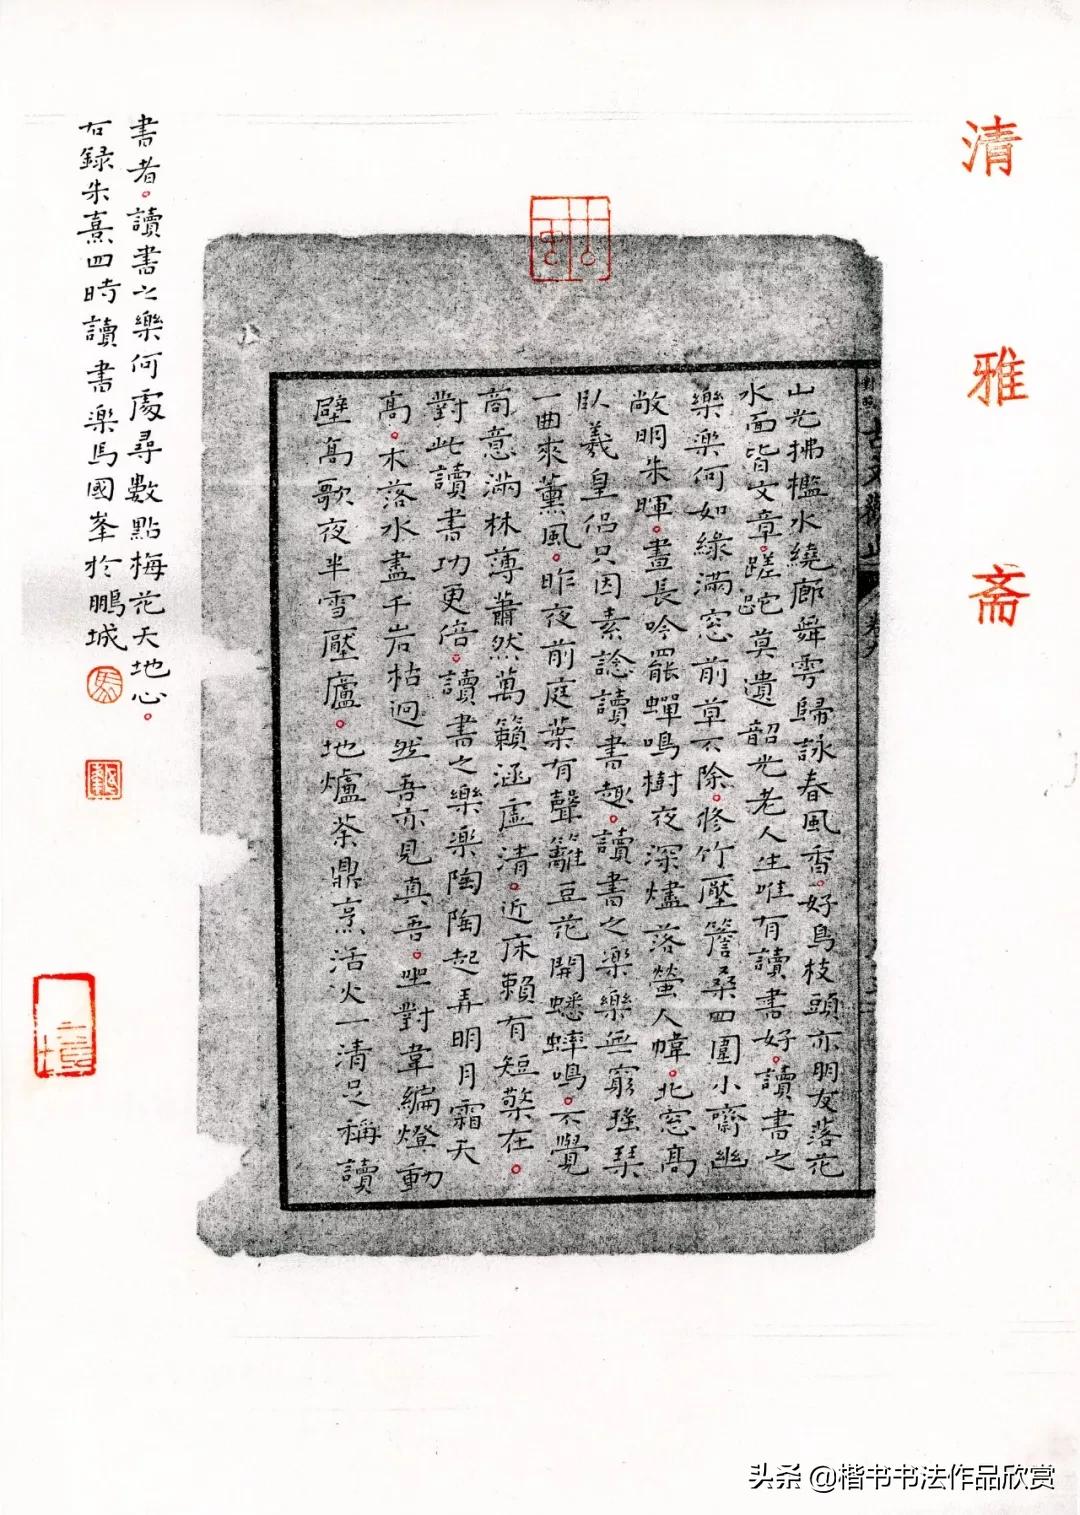 清雅斋
山光拂檻水繞廊舞雩歸詠春風香。好鳥枝頭亦朋友落花
水面皆文章。蹉跎莫遣韶光老人生唯有讀書好。讀書之
樂樂何如綠滿窓前草不除。修竹壓簷桑四圍小齋幽
敞明朱暉。晝長吟罷蟬鳴樹夜深燼落螢人幃。北窓高
臥羲皇侣只因素諗讀書趣。讀書之樂樂無窮瑤琴
一曲來薰風。昨夜前庭葉有聲籬豆花開蟋蟀鳴。不覺
商意滿林薄蕭然萬籟涵虛清。近床賴有短檠在。
對此讀書功更倍。讀書之樂樂陶陶起弄明月霜天
高。木落水盡千岩枯迥然吾亦見真吾。坐對韋編燈動
壁高歌夜半雪壓廬。地爐茶鼎烹活火一清足稱讀
書者。讀書之樂何處尋數點梅花天地心。
右錄朱熹四時讀書樂馬國峯於鵬城
馬
头条 @楷书书法作品欣赏